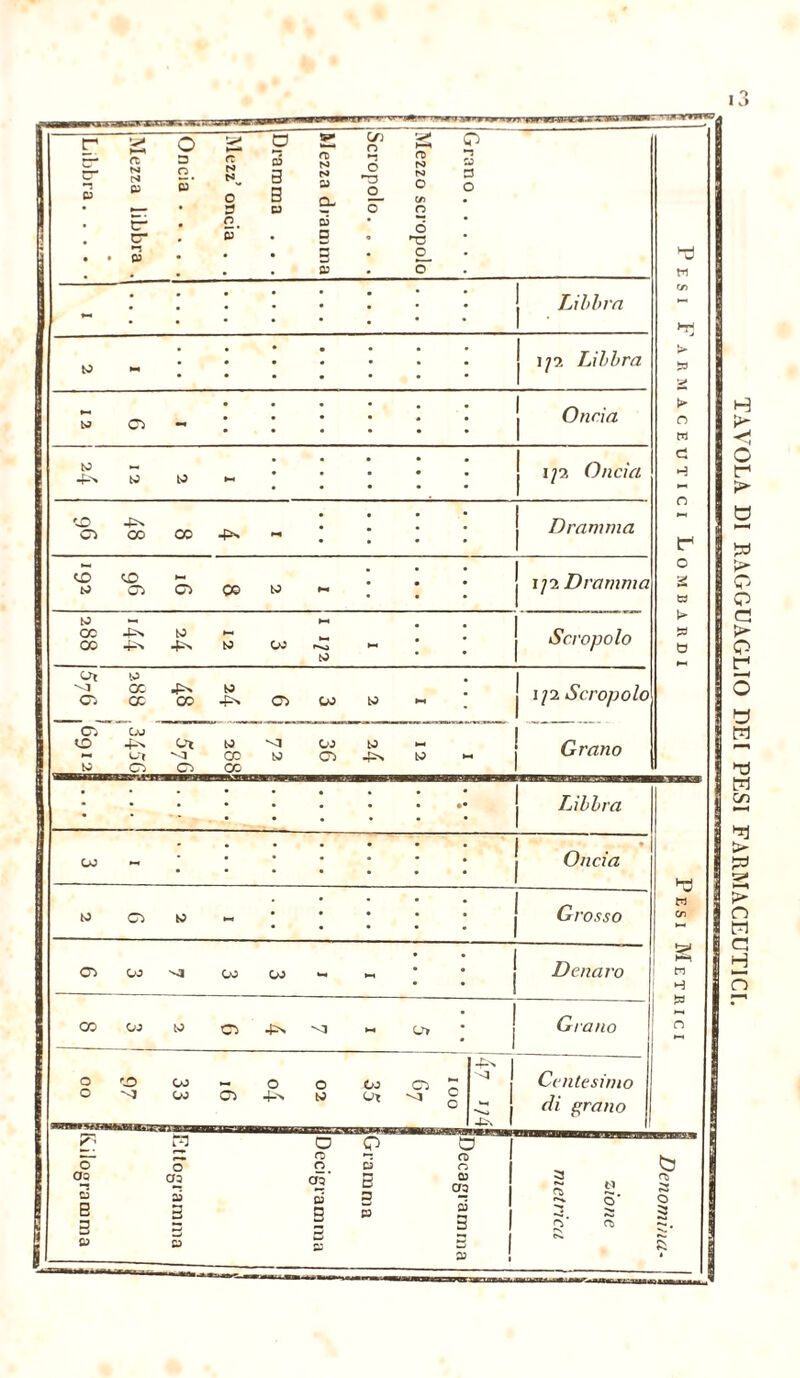 13
TAVOLA DI RAGGUAGLIO DEI PESI FARMACEUTICI.
PESI FARMACEUTICI LOMBARDI
PESI METRICI
Denomina-
zione
metrica
Libbra
1/2 Libbra
Oncia
1/2 Oncia
Dramma
1/2 Dramma
Scropolo
1/2 Scropolo
Grano
Libbra
Oncia
Grosso
Denaro
Grano
Centesimo
di grano
Grano . . . . 1 47 1/4
100 Decagramma
Mezzo scropolo 1 12 5 67
Scropolo. . . 1 2 24 1 1 35 Gramma
Mezza dramma 1 1 1/2 3 36 1 7 02
Dramma . . . 1 2 3 6 72 3 4 04 Decigramma
Mezz' oncia . . 1 4 8 12 24 288 1 3 6 16
Oncia . . . . 1 2 8 16 24 48 576 2 7 2 33
Mezza libbra 1 6 12 48 96 144 288 3456 1 6 3 3 97 Ettogramma
Libbra . . . . . 1 2 12 24 96 192 288 576 6912 3 2 6 8 00 Kilogramma